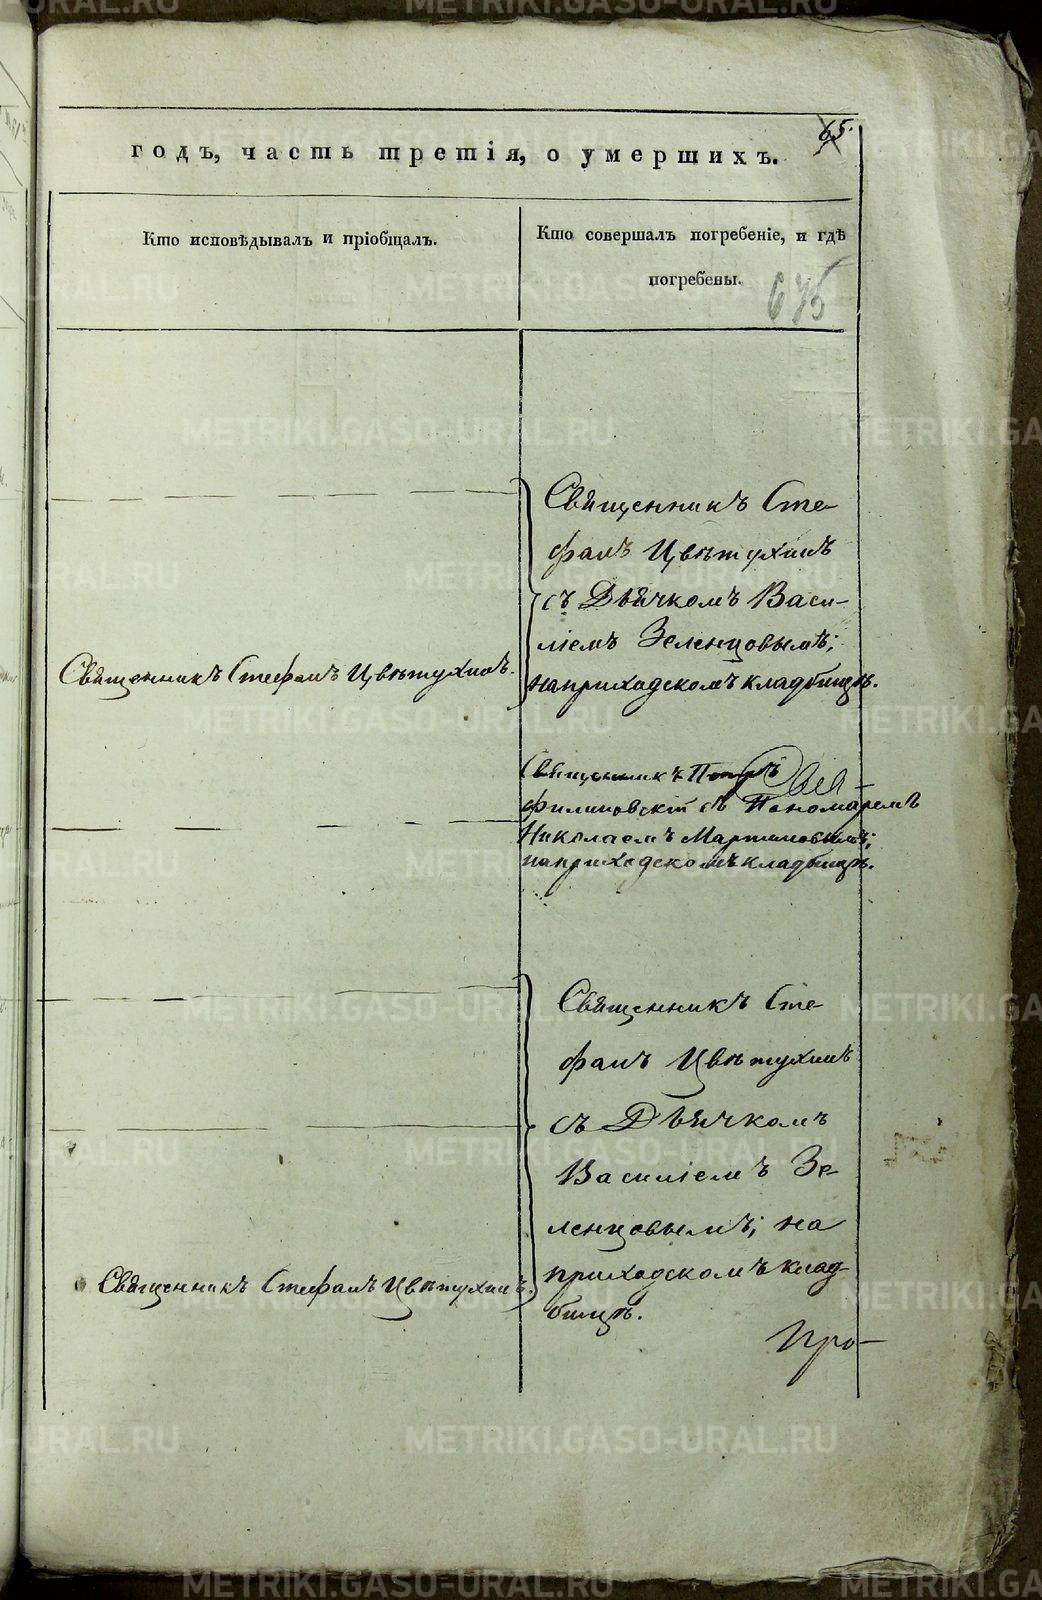 65.
годъ, часть третія, о умершихъ.
Кто исповѣдывалъ и пріобщалъ.
Кто совершалъ погребеніе, и гдѣ
погребены.
675
Священникъ Сте-
фанъ Цвѣтухинъ
съ Дьячкомъ Васи-
ліемъ Зеленцовымъ;
на приходскомъ кладбищѣ.
Священникъ Стефанъ Цвѣтухинъ.
Священникъ Петръ
Филиповскій съ Пономаремъ
Николаемъ Мартиновымъ;
на приходскомъ кладбищѣ.
Священникъ Сте-
фанъ Цвѣтухинъ
съ Дьячкомъ
Василіемъ Зе-
ленцовымъ; на
приходскомъ клад-
бищѣ.
Священникъ Стефанъ Цвѣтухинъ.
Про-
METRIKI.GASO-URAL.RU